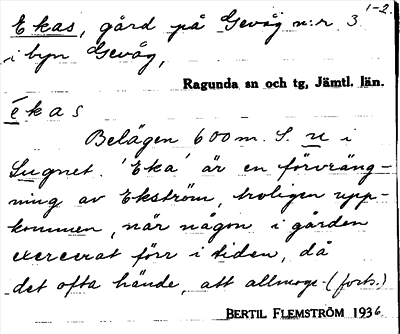 Ekas, gård på Gevåg n:r 3 1-2
i byn Gevåg,
Ragunda sn och tg, Jämtl. län.
ékas
Belägen 600 m. S. n i
Lugnet. 'Eka' är en förvräng-
ning av Ekström, troligen upp-
kommen, när någon i gården
exercerat förr i tiden, då
det ofta hände, att allmoge- (forts.)
BERTIL FLEMSTRÖM 1936.